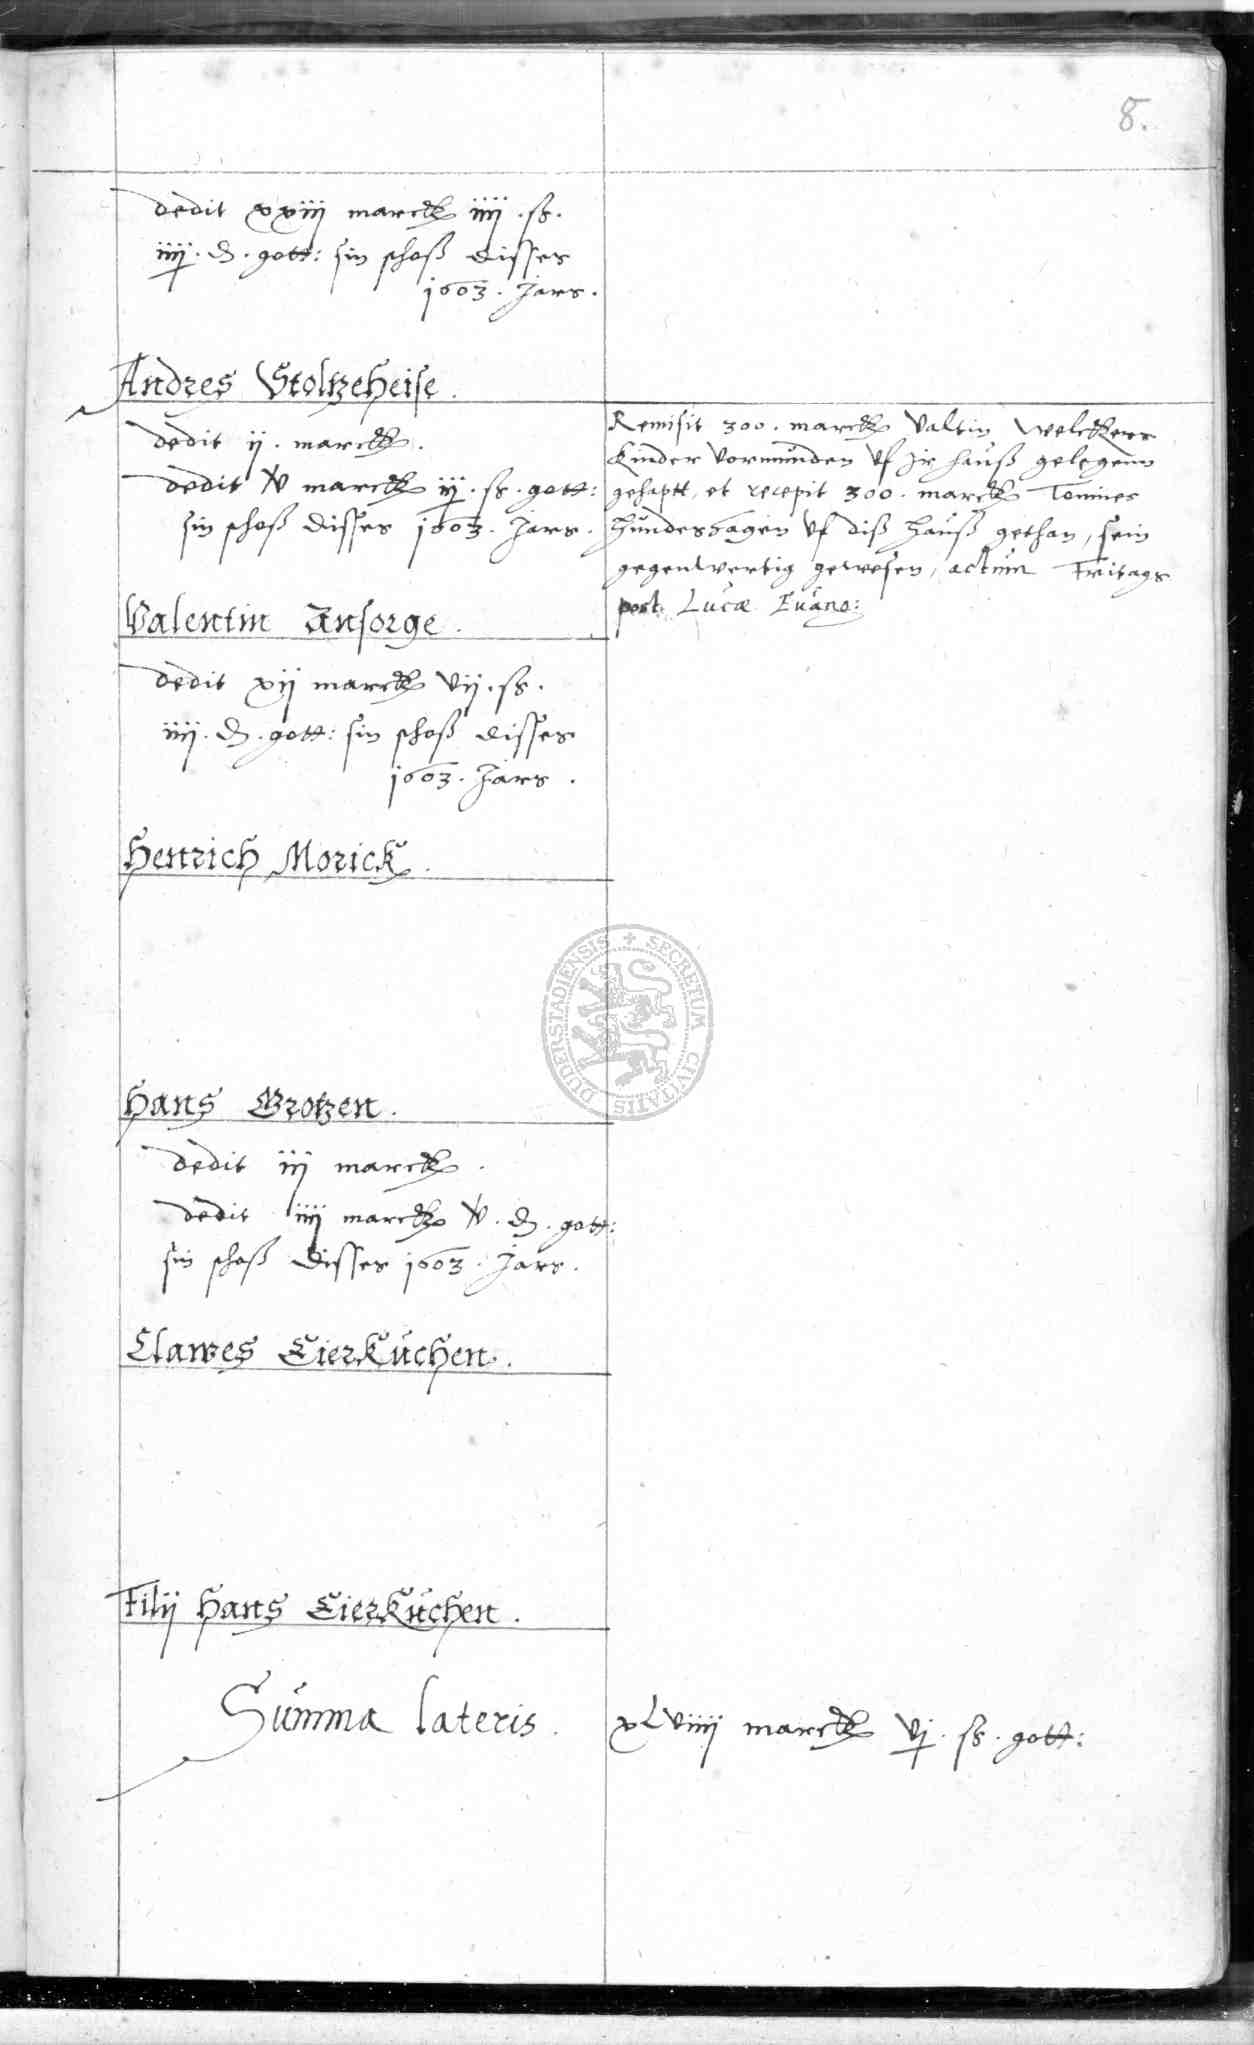 8.
dedit xxiij marck iiij. ß.
iiij. d. gott: sin schoß disses
1603. Jars.
Andres Stoltzeheise.
dedit ij. marck.
dedit v marck iij. ß. gott:
sin schoß disses 1603. Jars.
Remisit 300. marck Valtin Welckers
Kinder Vormunden vf Jr hauß gelegenn
gehaptt, et recepit 300. marck Tonnies
Hundeshagen vf diß Hauß gethan, sein
gegenwertig gewesen, actum Fritags
post Lucæ Euang:
Valentin Ansorge.
dedit xij marck vij. ß.
iiij. d. gott: sin schoß disses
1603. Jars.
Henrich Morick.
DUDERSTADIENSIS + SECRETUM CIVITATIS
Hans Grotzen.
dedit iij marck.
dedit iiij marck v. d. gott:
sin schoß disses 1603. Jars.
Clawes Eierkuchen.
Filij Hans Eierkuchen.
Summa lateris. xLviiij marck vj. ß. gott: